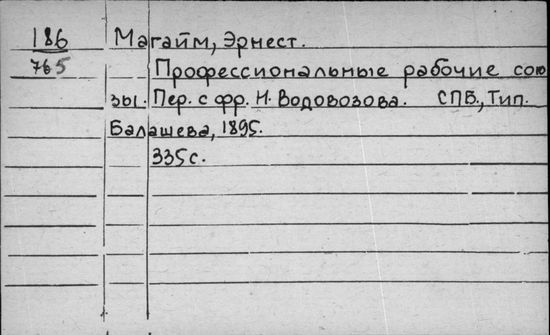 186 Магайм, Эрнест.
765 Профессиональные рабочие сою
зы. Пер. с фр. Н. Водовозова. СПБ., Тип.
Балашева, 1895.
335 с.